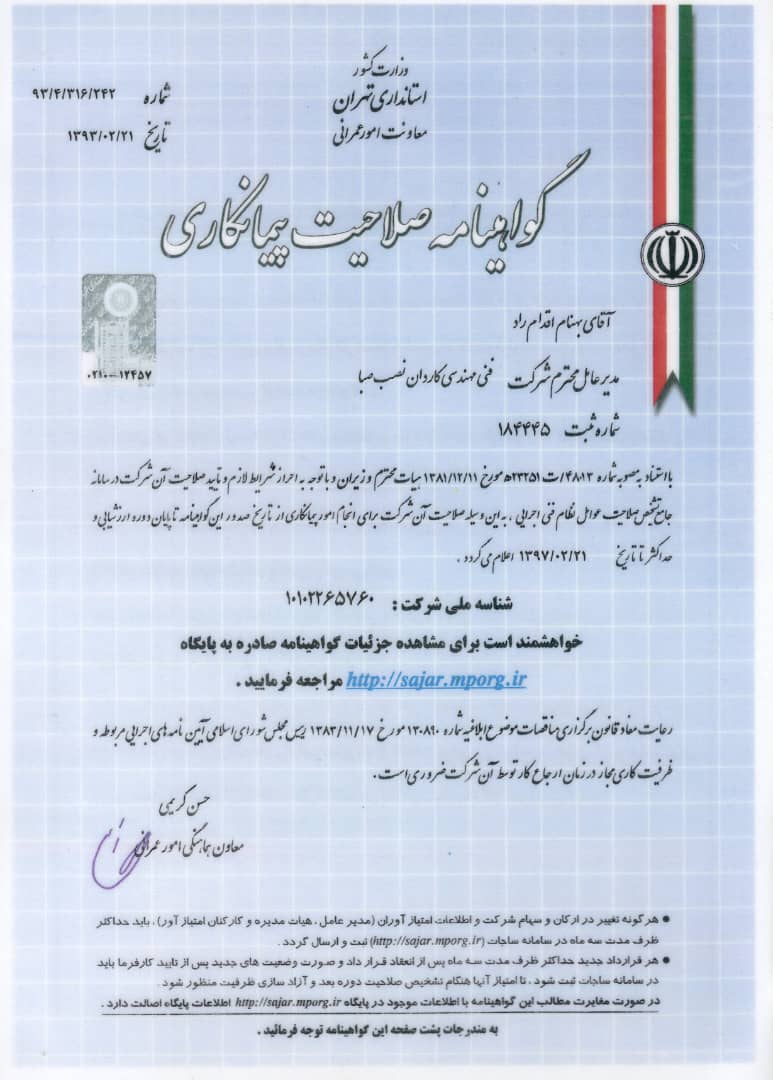 وزارت کشور
استانداری تهران
معاونت امور عمرانی
شماره ۹۳/۴/۳۱۶/۲۴۲
تاریخ ۱۳۹۳/۰۲/۲۱
گواهینامه صلاحیت پیمانکاری
۰۲۱۰-۱۲۴۵۷
آقای بهنام اقدام راد
مدیرعامل محترم شرکت فنی مهندسی کاردان نصب صبا
شماره ثبت ۱۸۴۴۴۵
با استناد به مصوبه شماره ۴۸۰۱۳/ت۲۳۲۵۱ه مورخ ۱۳۸۱/۱۲/۱۱ هیات محترم وزیران و با توجه به احراز شرایط لازم و تایید صلاحیت آن شرکت در سامانه
جامع تشخیص صلاحیت عوامل نظام فنی اجرایی ، به این وسیله صلاحیت آن شرکت برای انجام امور پیمانکاری از تاریخ صدور این گواهینامه تا پایان دوره ارزشیابی و
حداکثر تا تاریخ ۱۳۹۷/۰۲/۲۱ اعلام می گردد .
شناسه ملی شرکت : ۱۰۱۰۲۲۶۵۷۶۰
خواهشمند است برای مشاهده جزئیات گواهینامه صادره به پایگاه
http://sajar.mporg.ir مراجعه فرمایید .
رعایت مفاد قانون برگزاری مناقصات موضوع ابلاغیه شماره ۱۳۰۸۹۰ مورخ ۱۳۸۳/۱۱/۱۷ رییس مجلس شورای اسلامی آیین نامه های اجرایی مربوطه و
ظرفیت کاری مجاز در زمان ارجاع کار توسط آن شرکت ضروری است.
حسن کریمی
معاون هماهنگی امور عمرانی
● هر گونه تغییر در ارکان و سهام شرکت و اطلاعات امتیاز آوران (مدیر عامل ، هیات مدیره و کارکنان امتیاز آور) ، باید حداکثر
ظرف مدت سه ماه در سامانه ساجات (http://sajar.mporg.ir) ثبت و ارسال گردد .
● هر قرارداد جدید حداکثر ظرف مدت سه ماه پس از انعقاد قرار داد و صورت وضعیت های جدید پس از تایید کارفرما باید
در سامانه ساجات ثبت شود ، تا امتیاز آنها هنگام تشخیص صلاحیت دوره بعد و آزاد سازی ظرفیت منظور شود .
در صورت مغایرت مطالب این گواهینامه با اطلاعات موجود در پایگاه http://sajar.mporg.ir اطلاعات پایگاه اصالت دارد .
به مندرجات پشت صفحه این گواهینامه توجه فرمائید .